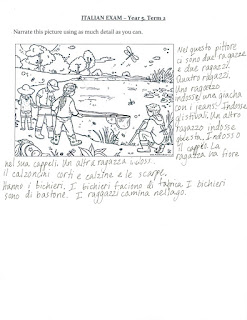 ITALIAN EXAM – Year 5, Term 2
Narrate this picture using as much detail as you can.
Nel questo pittore
ci sono due ragazze
e due ragazzi.
Quatro ragazzi.
Un ragazzo
indosse una giacha
con i jeans. Indosse
gli stivali. Un altro
ragazzo indosse
questa. Indosso
il cappel. La
ragazza va fiore
nel sua cappeli. Un altra ragazza
il calzoncini corti e calzine e le scarpe.
hanno i bichieri. I bichieri facismo di I bichieri
sono di bastone. I raggazzi camina nel lago.